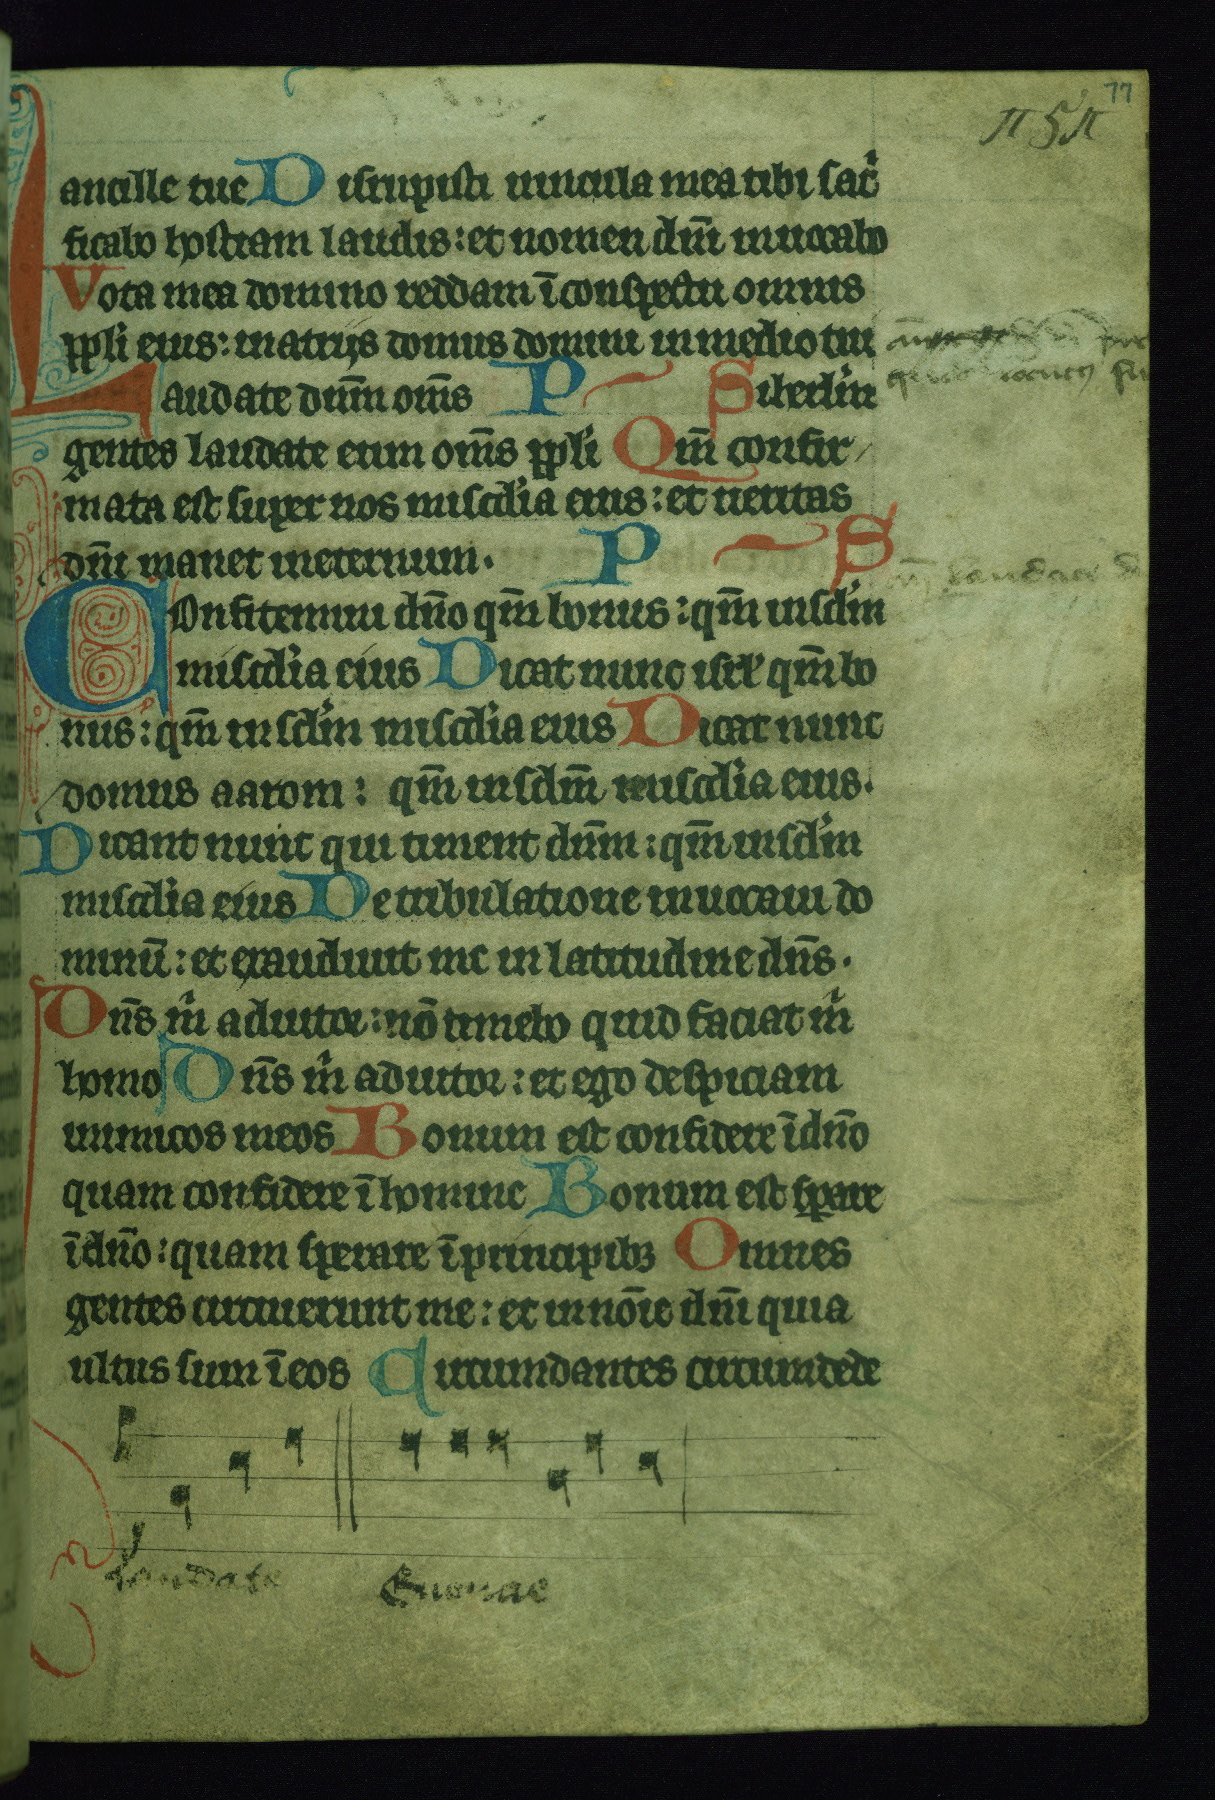 77
ancille tue Disrupisti uincula mea tibi sac̉
ficabo hostiam laudis: et nomen dn̄i inuocabo
Vota mea domino reddam ī conspectu omnis
ppli eius: in atrijs domus domini in medio tui
Laudate dnm̄ om̄s P
gentes laudate eum om̄s ppli Qm̄ confir
mata est super nos miscdia eius: et ueritas
dn̄i manet ineternum. P S
Confitemini dn̄o qm̄ bonus: qm̄ inscdm
miscdia eius Dicat nunc isrl qm̄ bo
nus: qm̄ inscdm miscdia eius Dicat nunc
domus aaron: qm̄ inscdm̄ miscdia eius.
Dicant nunc qui timent dnm̄: qm̄ inscdm
miscdia eius De tribulatione inuocaui do
minū: et exaudiuit me in latitudine dn̄s.
Dn̄s m̉ adiutor: nō timebo quid faciat m̉
homo Dn̄s m̉ adiutor: et ego despiciam
inimicos meos Bonum est confidere ī dn̄o
quam confidere ī homine Bonum est sꝑare
ī dn̄o: quam sperare ī principibꝫ Omnes
gentes circuierunt me: et in nōie dn̄i quia
ultus sum ī eos Circumdantes circumdede
laudate Euouae